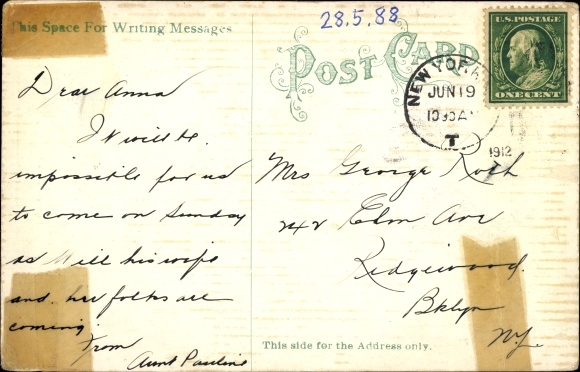 This Space For Writing Messages
28.5.88
POST CARD
U.S. POSTAGE
ONE CENT
NEW YORK
JUN 19
1030 A
T
1912
Dear Anna
It will be
impossible for us
to come on Sunday
as Will his wife
and her folks are
coming
From
Aunt Pauline
Mrs George Roth
242 Elm Ave
Ridgewood.
Bklyn
N.Y.
This side for the Address only.